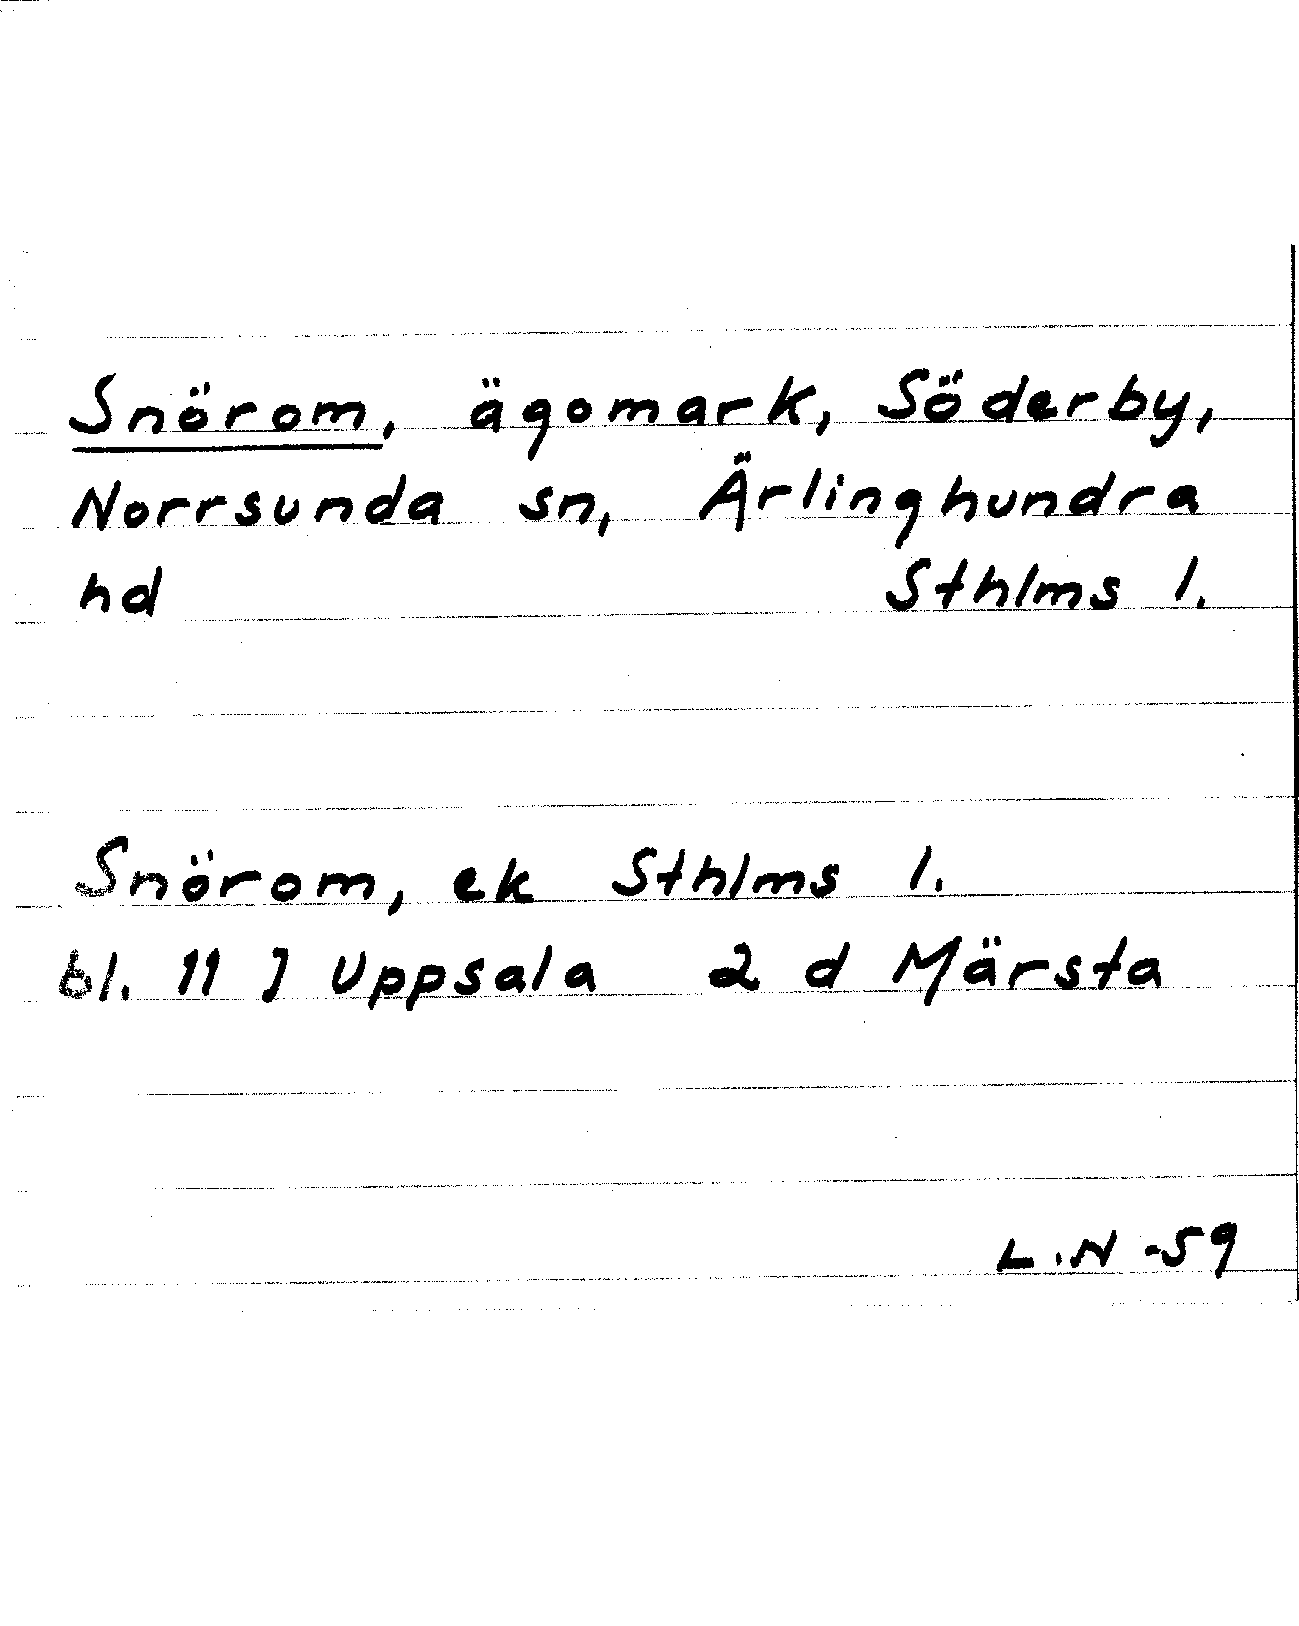 Snörom, ägomark, Söderby,
Norrsunda sn, Ärlinghundra
hd Sthlms l.
Snörom, ek Sthlms l.
bl. 11 J Uppsala 2 d Märsta
L.N -59